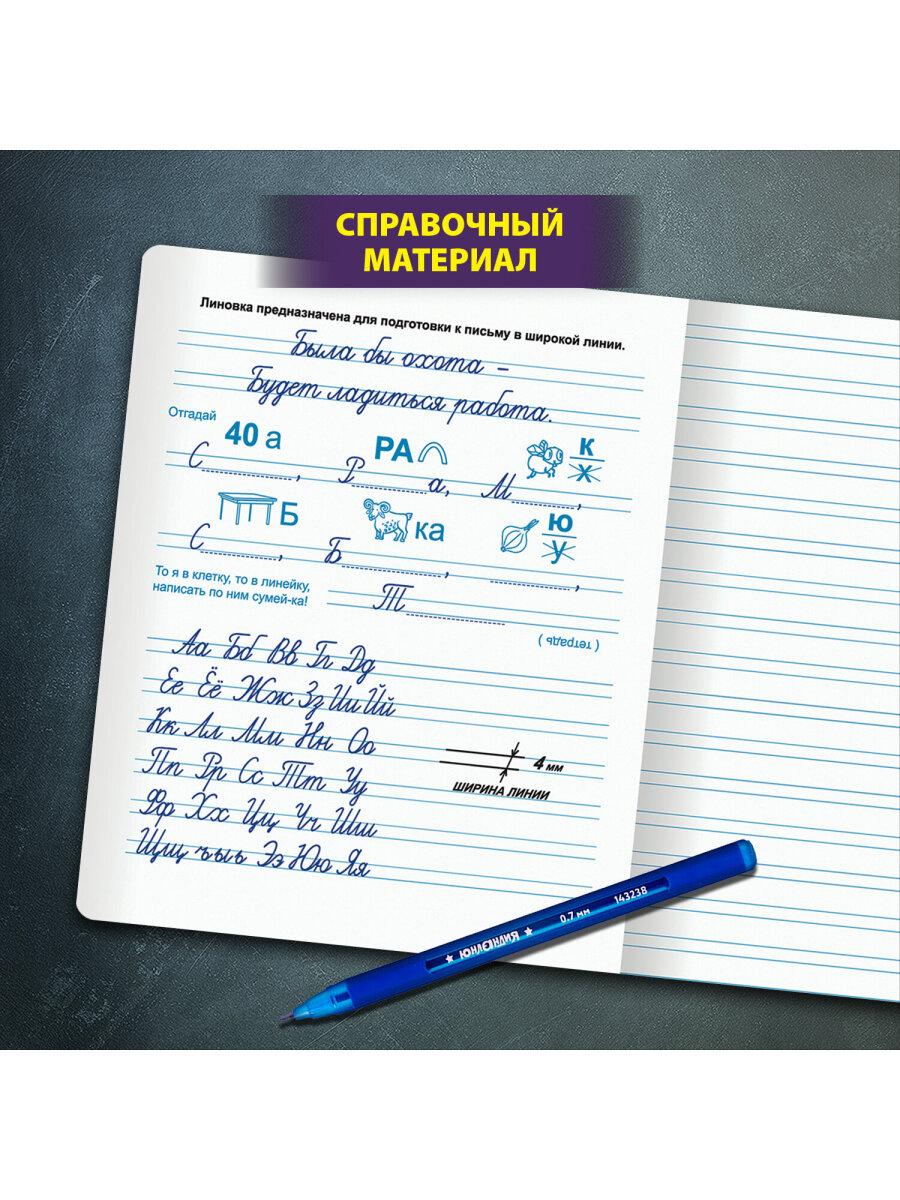 СПРАВОЧНЫЙ
МАТЕРИАЛ
Линовка предназначена для подготовки к письму в широкой линии.
Была бы охота –
Будет ладиться работа.
Отгадай
40 а РА К Ж
С , Р а, М ,
Б ка Ю У
С , Б , ,
То я в клетку, то в линейку,
написать по ним сумей-ка!
Т
( тетрадь )
Аа Бб Вв Гг Дд
Ее Ёё Жж Зз Ии Йй
Кк Лл Мм Нн Оо
4 мм
ШИРИНА ЛИНИИ
Пп Рр Сс Тт Уу
Фф Хх Цц Чч Шш
Щщ ъыь Ээ Юю Яя
ЮНЛАНДИЯ 0.7 мм 143238